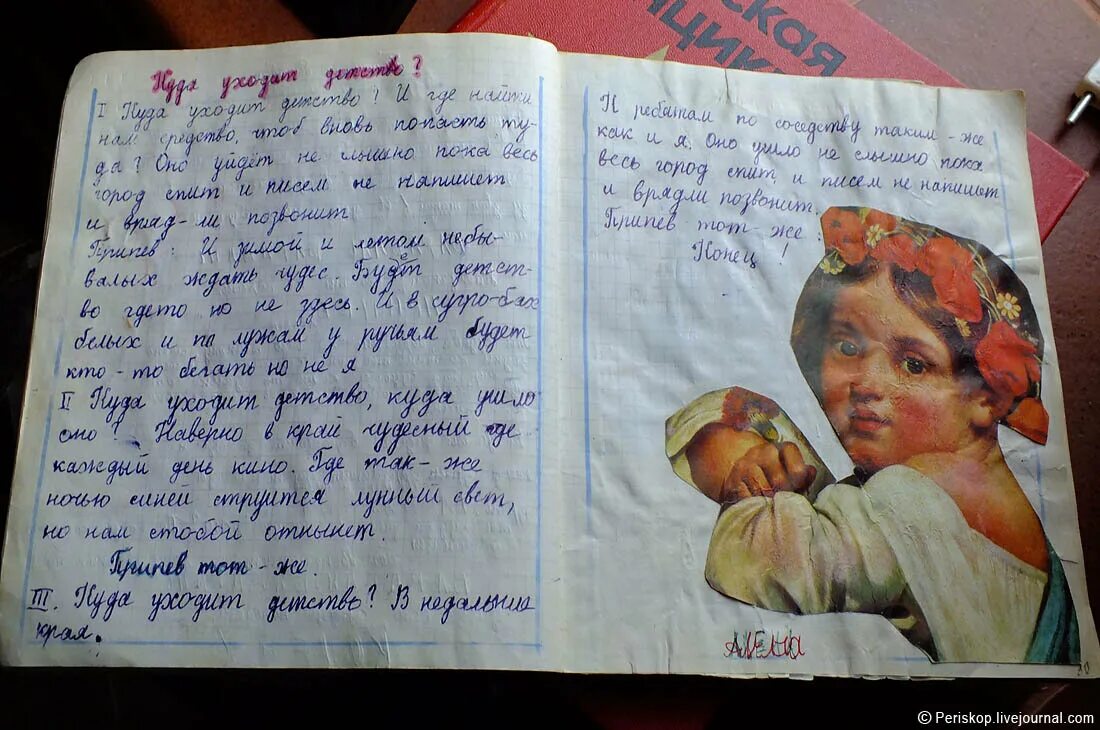 Куда уходит детство?
I Куда уходит детство! И где найти
нам средство, чтоб вновь попасть ту-
да? Оно уйдёт не слышно пока весь
город спит и писем не напишет
и вряд-ли позвонит
Припев: И зимой и летом небы-
валых ждать чудес. Будет детст-
во гдето но не здесь. И в сугро-бах
белых и по лужам у ручьям будет
кто-то бегать но не я
II Куда уходит детство, куда ушло
оно? Наверно в край чудесный где
каждый день кино. Где так-же
ночью синей струится лунный свет,
но нам стобой отныне нет.
Припев тот-же.
III. Куда уходит детство? В недальние
края.
К ребятам по соседству таким-же
как и я. Оно ушло не слышно пока
весь город спит и писем не напишет
и врядли позвонит.
Припев тот-же.
Конец!
ская
нцик
АЛЕНА
© Periskop.livejournal.com